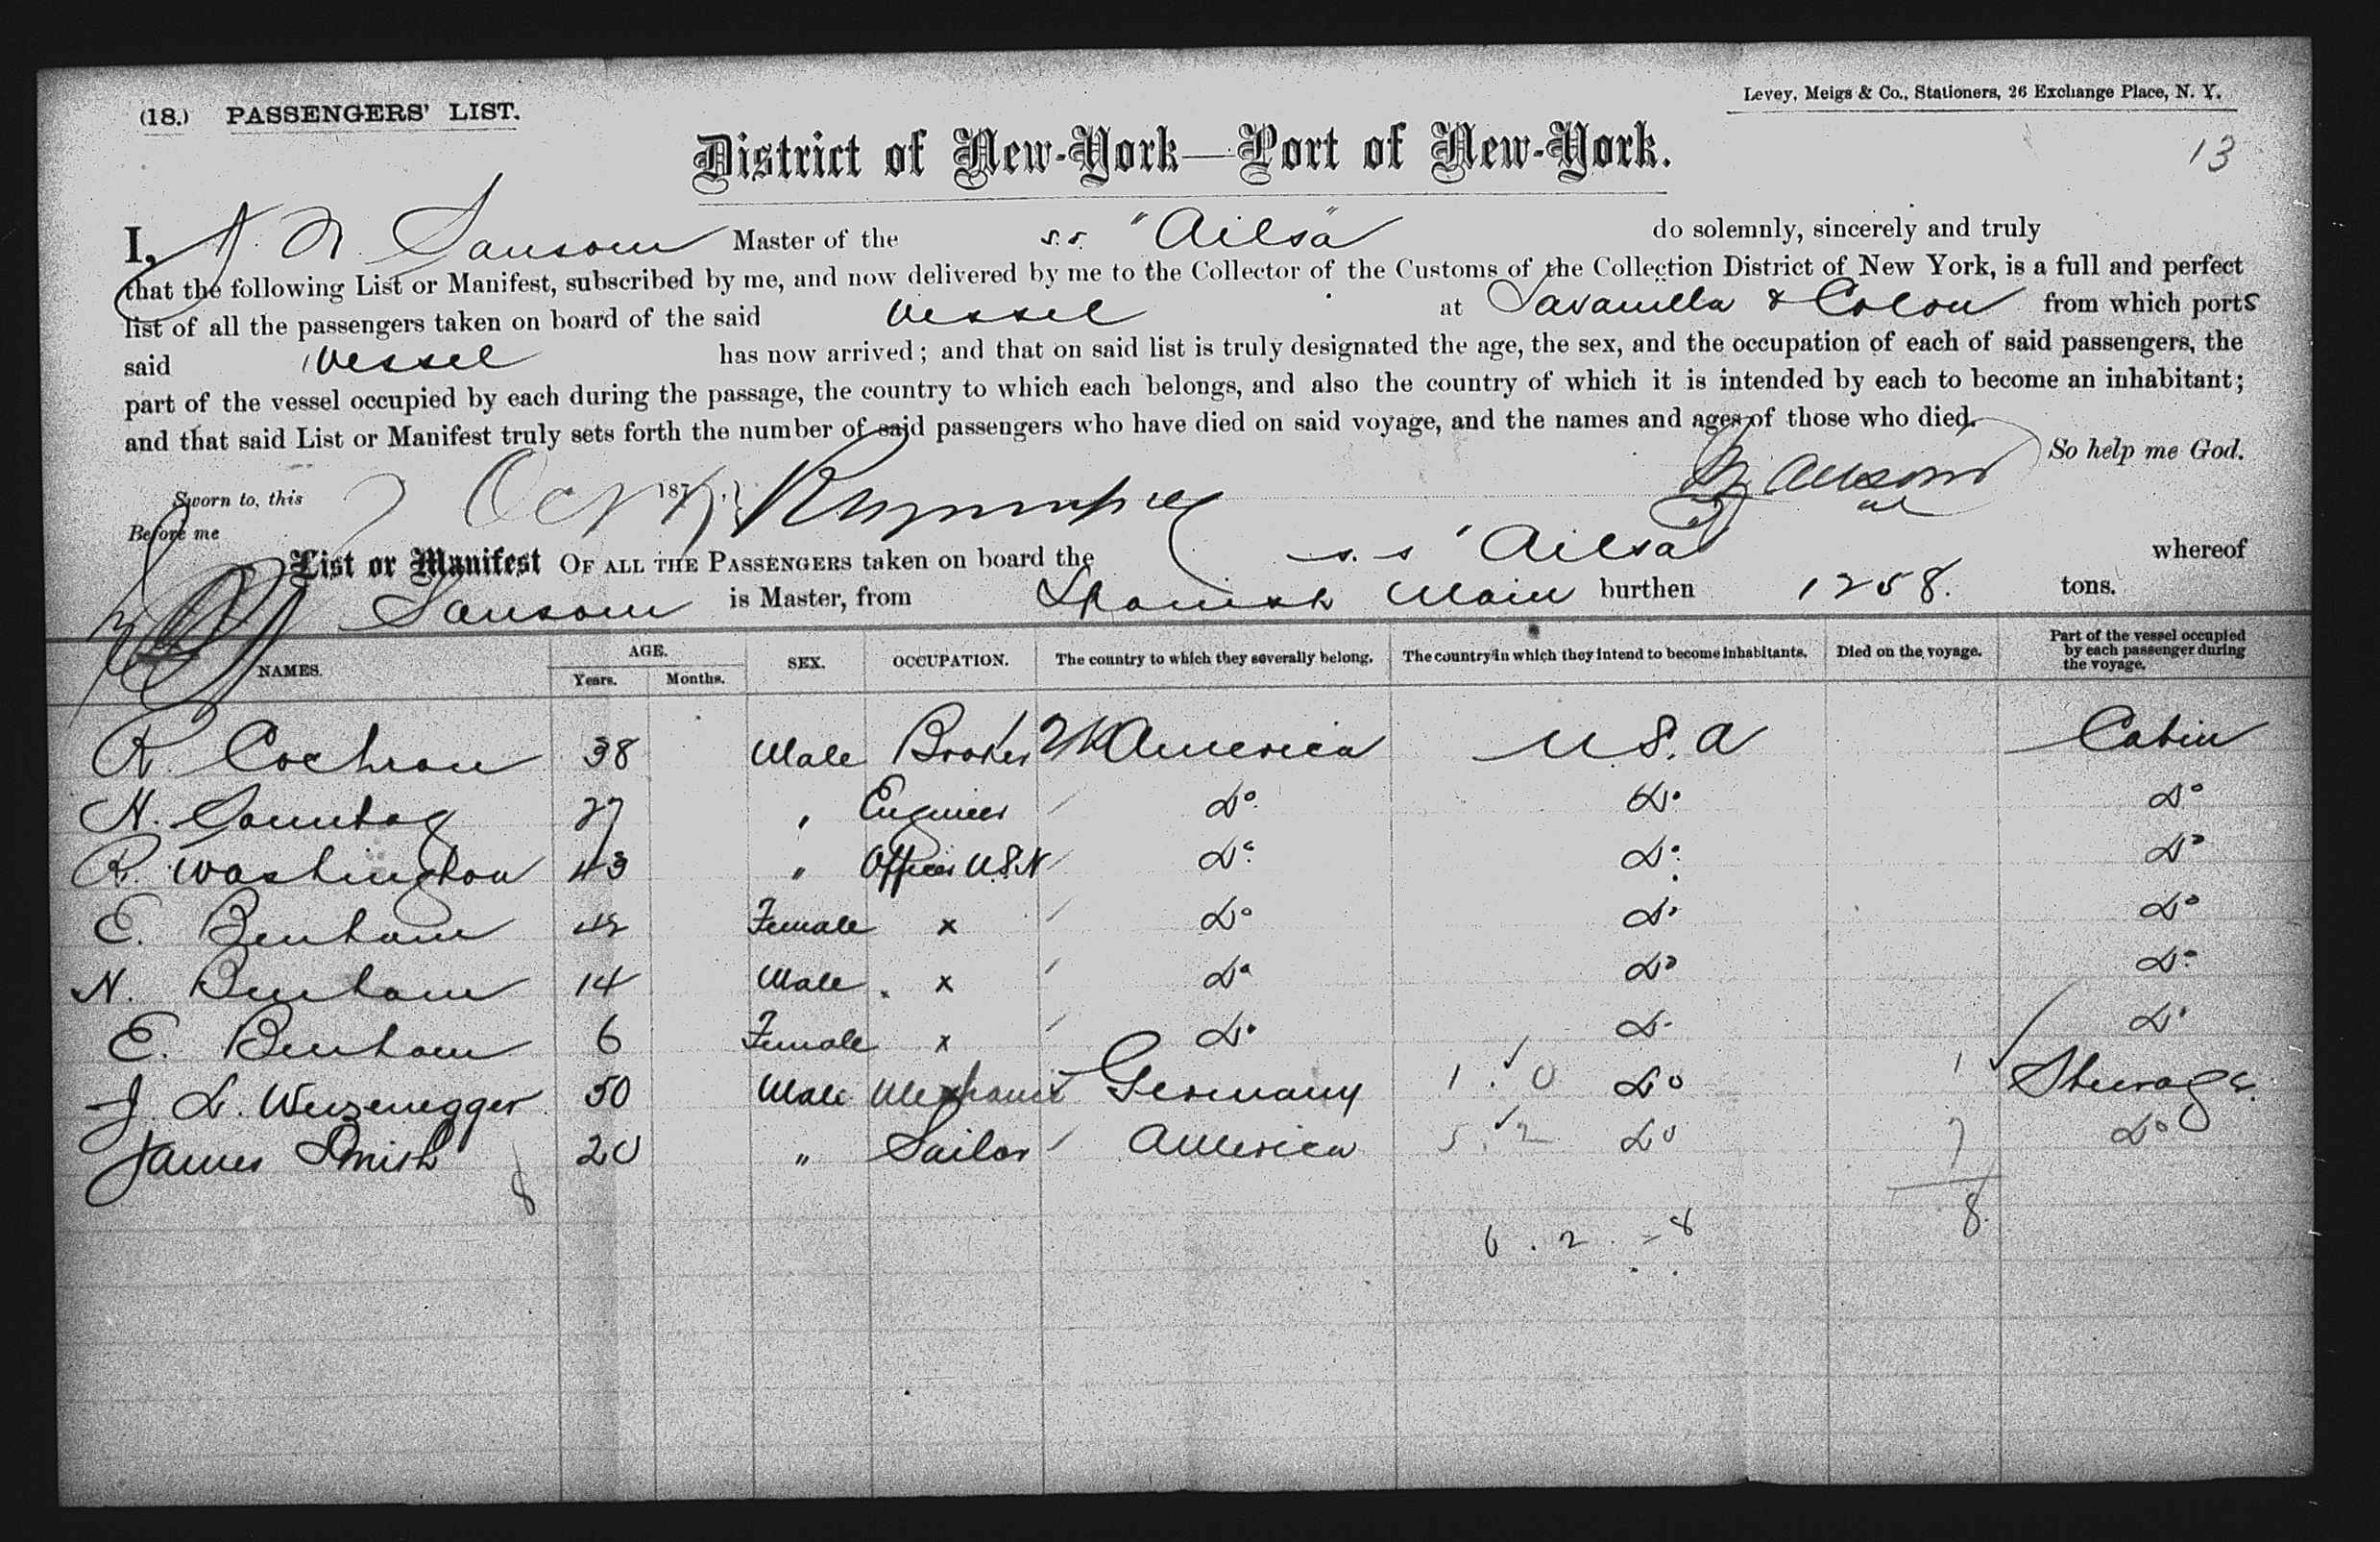 (18.) PASSENGERS' LIST.
Levey, Meigs & Co., Stationers, 26 Exchange Place, N. Y.
13
District of New-York—Port of New-York.
I, Sansom Master of the s.s. "Ailsa" do solemnly, sincerely and truly
that the following List or Manifest, subscribed by me, and now delivered by me to the Collector of the Customs of the Collection District of New York, is a full and perfect
list of all the passengers taken on board of the said Vessel at Savanilla & Colon from which ports
said Vessel has now arrived; and that on said list is truly designated the age, the sex, and the occupation of each of said passengers, the
part of the vessel occupied by each during the passage, the country to which each belongs, and also the country of which it is intended by each to become an inhabitant;
and that said List or Manifest truly sets forth the number of said passengers who have died on said voyage, and the names and ages of those who died.
So help me God.
Sworn to, this 7 Oct 187
Before me
List or Manifest OF ALL THE PASSENGERS taken on board the s.s "Ailsa" whereof
Sansom is Master, from Spanish Main burthen 1258. tons.
NAMES. AGE. Years. Months. SEX. OCCUPATION. The country to which they severally belong. The country in which they intend to become inhabitants. Died on the voyage. Part of the vessel occupied by each passenger during the voyage.
R. Cochran 38 Male Broker America U.S.A Cabin
H. Sonntag 27 " Engineer Do Do Do
R. Washington 43 " Officer U.S.N Do Do Do
E. Benham 42 Female x Do Do Do
N. Benham 14 Male x Do Do Do
E. Benham 6 Female x Do Do Do
J. L. Weizenegger 50 Male Mechanic Germany 1 . 0 Do 1 Steerage
James Smith 20 " Sailor America 5 . 2 Do 7 Do
8
6 . 2 - 8
8